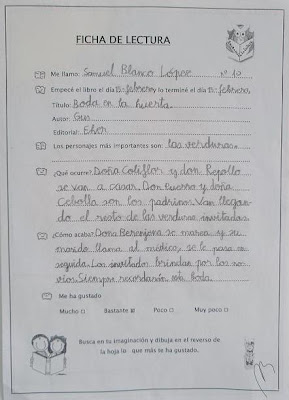 FICHA DE LECTURA
Me llamo: Samuel Blanco López nº 10
Empecé el libro el día 15-febrero y lo terminé el día 15-febrero.
Título: Boda en la huerta.
Autor:
Editorial:
Los personajes más importantes son: las verduras.
¿Qué ocurre? Doña Coliflor y don Repollo
se van a casar. Don Puerro y doña
Cebolla son los padrinos. Van llegan-
do el resto de las verduras invitadas.
¿Cómo acaba? Dona Berenjena se marea y su
marido llama al médico, se le pasa en
seguida. Los invitados brindan por los no-
vios. Siempre recordarán esta boda.
Me ha gustado
Mucho Bastante Poco Muy poco
Busca en tu imaginación y dibuja en el reverso de
la hoja lo que más te ha gustado.